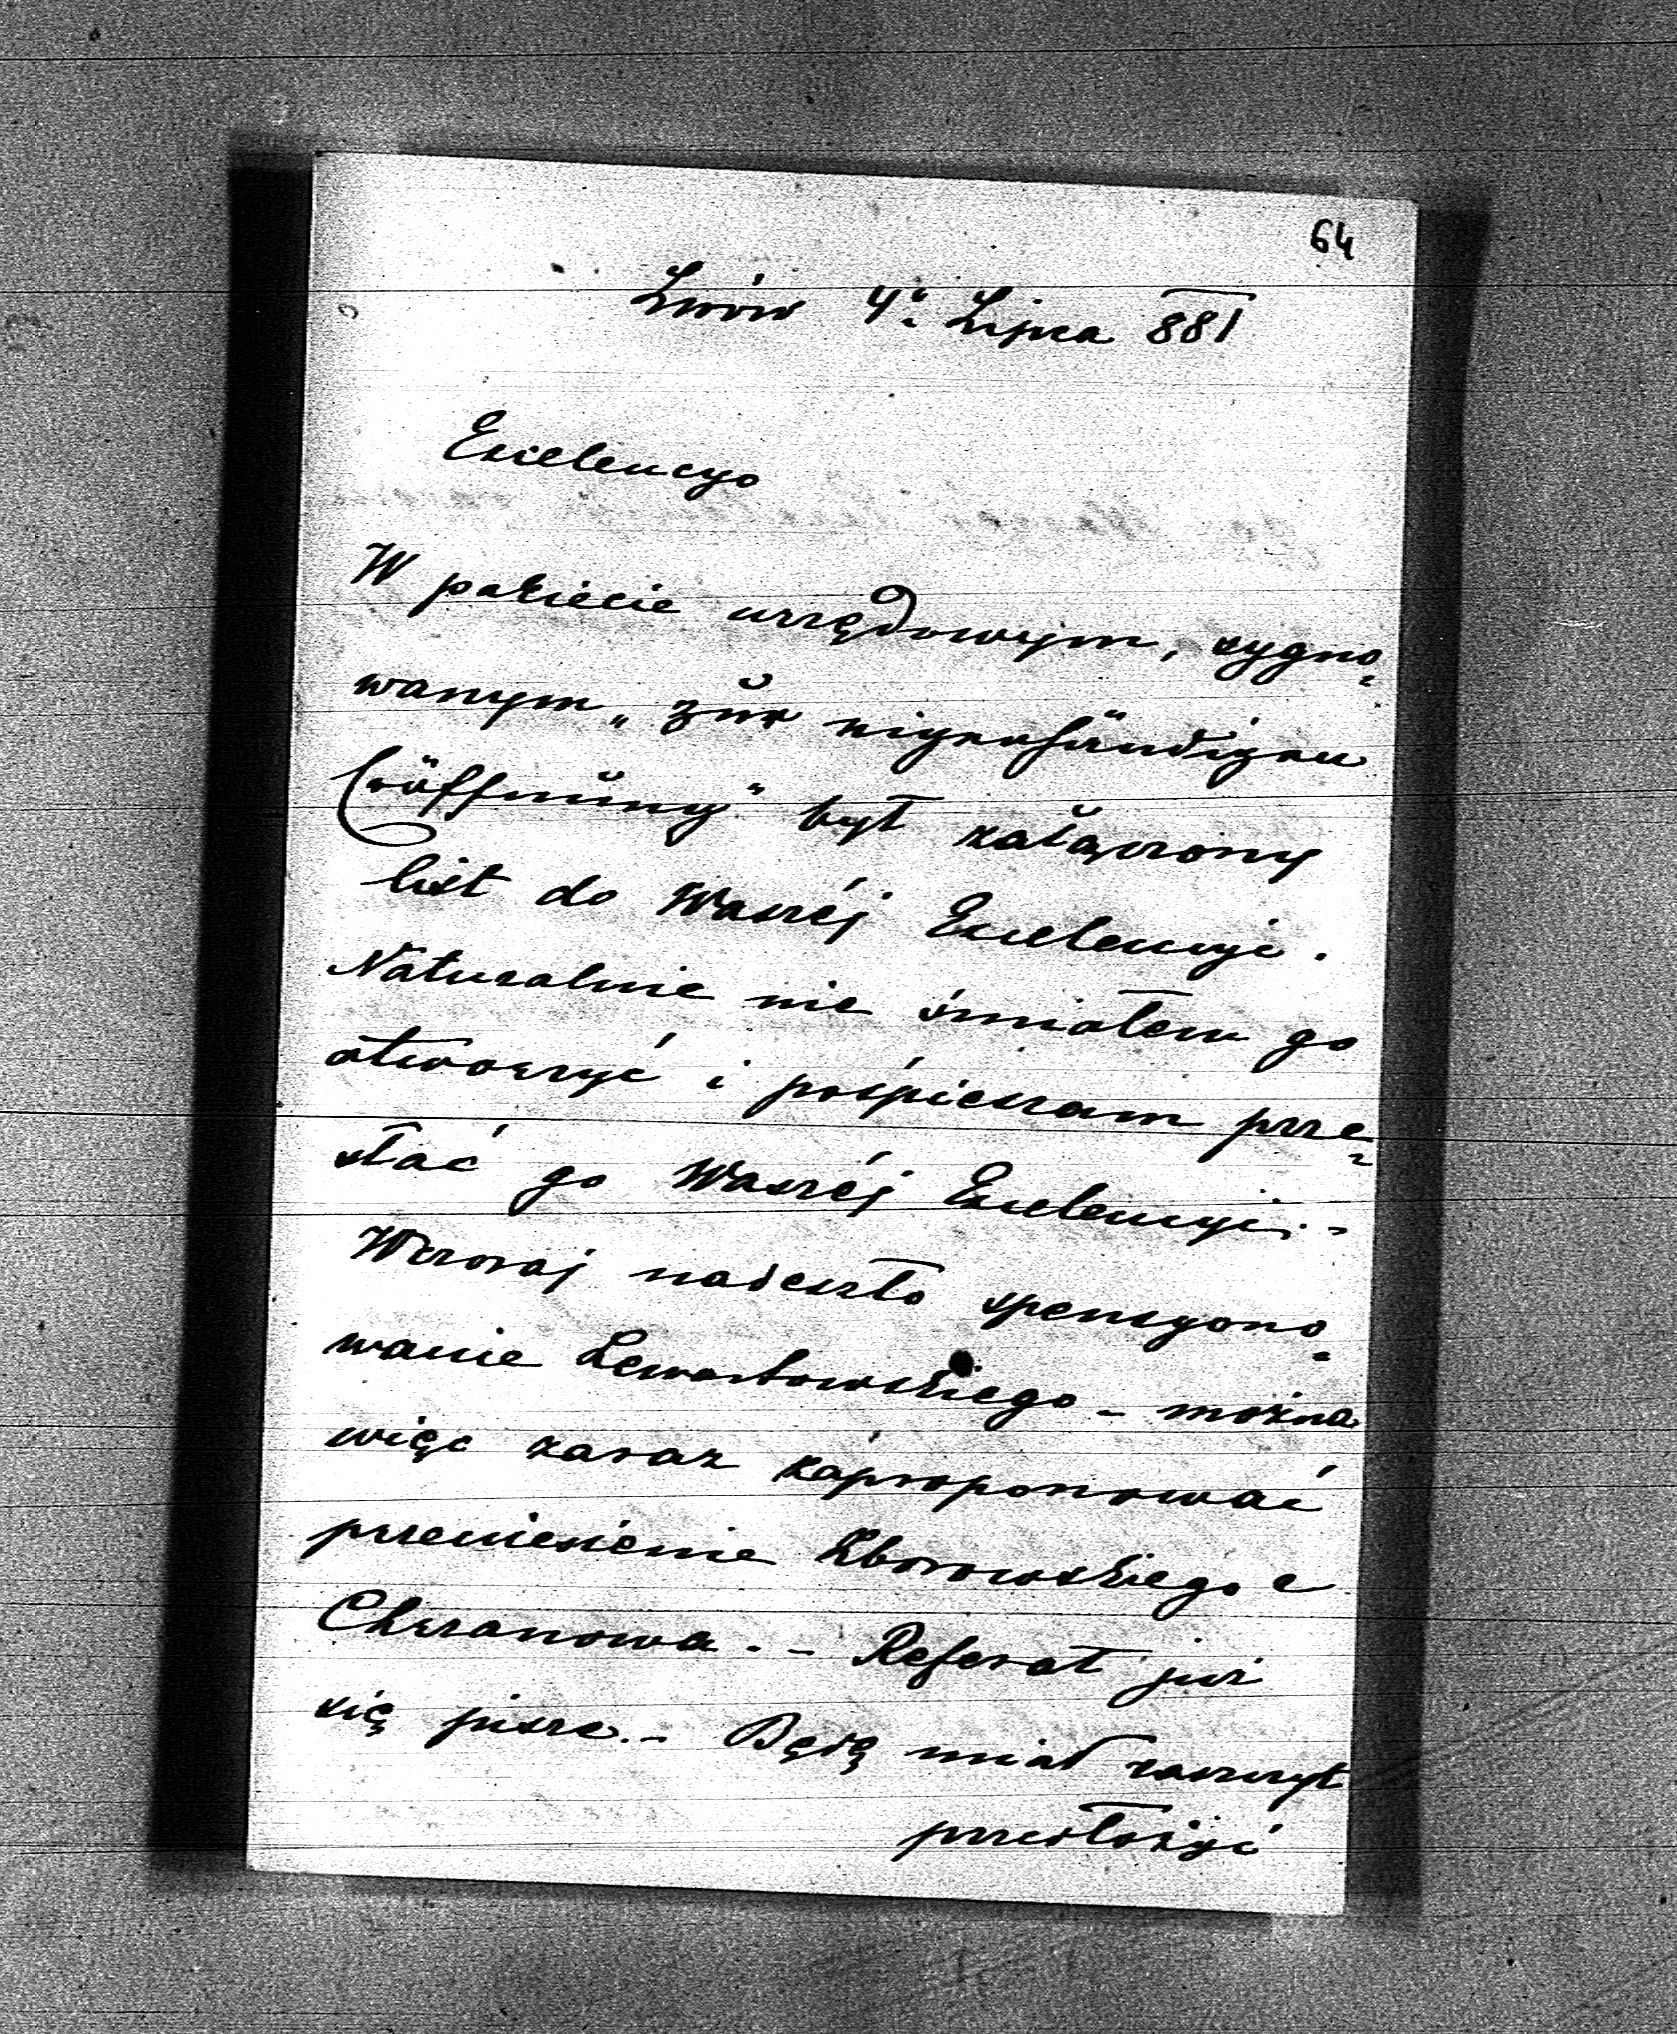 64
Lwów 4º Lipca 881
Excelencyo
W pakiecie urzędowym, sygno=
wanym „zŭr eigenhändigen
Eröffnŭng" był załączony
list do Waszéj Excelencyi.
Naturalnie nie śmiałem go
otworzyć i pośpieszam prze=
słać go Waszéj Excelencyi. -
Wczoraj nadeszło spensyono=
wanie Lewartowskiego - można
więc zaraz zaproponować
przeniesienie Zborowskiego z
Chrzanowa. - Referat już
się pisze. - Będę miał zaszczyt
przedłożyć